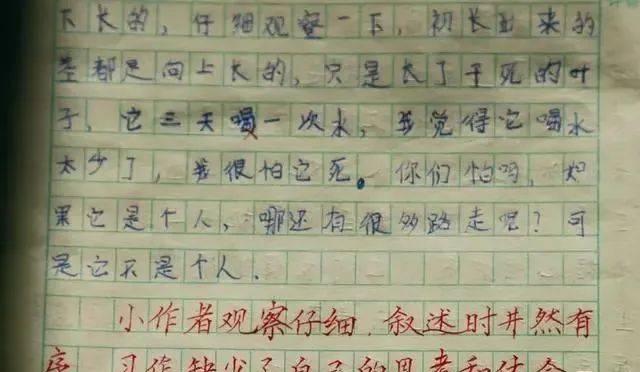 下长的，仔细观察一下，初长出来的
茎都是向上长的，只是长了干死的叶
子，它三天喝一次水，我觉得它喝水
太少了，我很怕它死。你们怕吗，如
果它是个人，哪还有很多路走呢？可
是它不是个人.
小作者观察仔细，叙述时井然有
序，习作缺少了自己的思考和体会